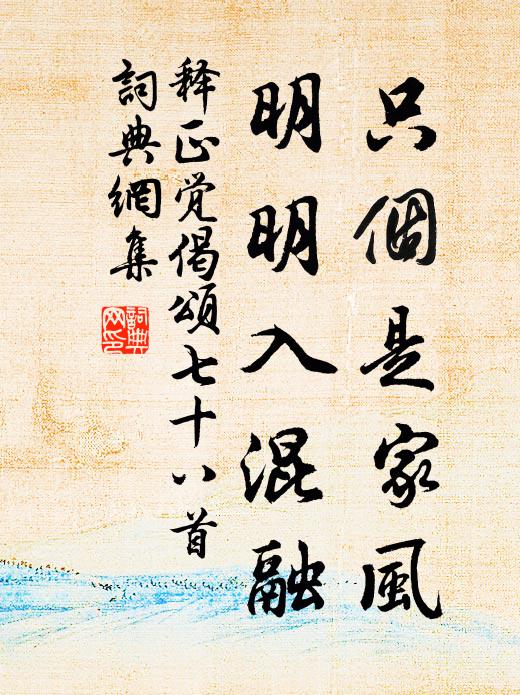 只個是家風
明明入混融
释正觉偈頌七十八首
詞典網集
詞典网印